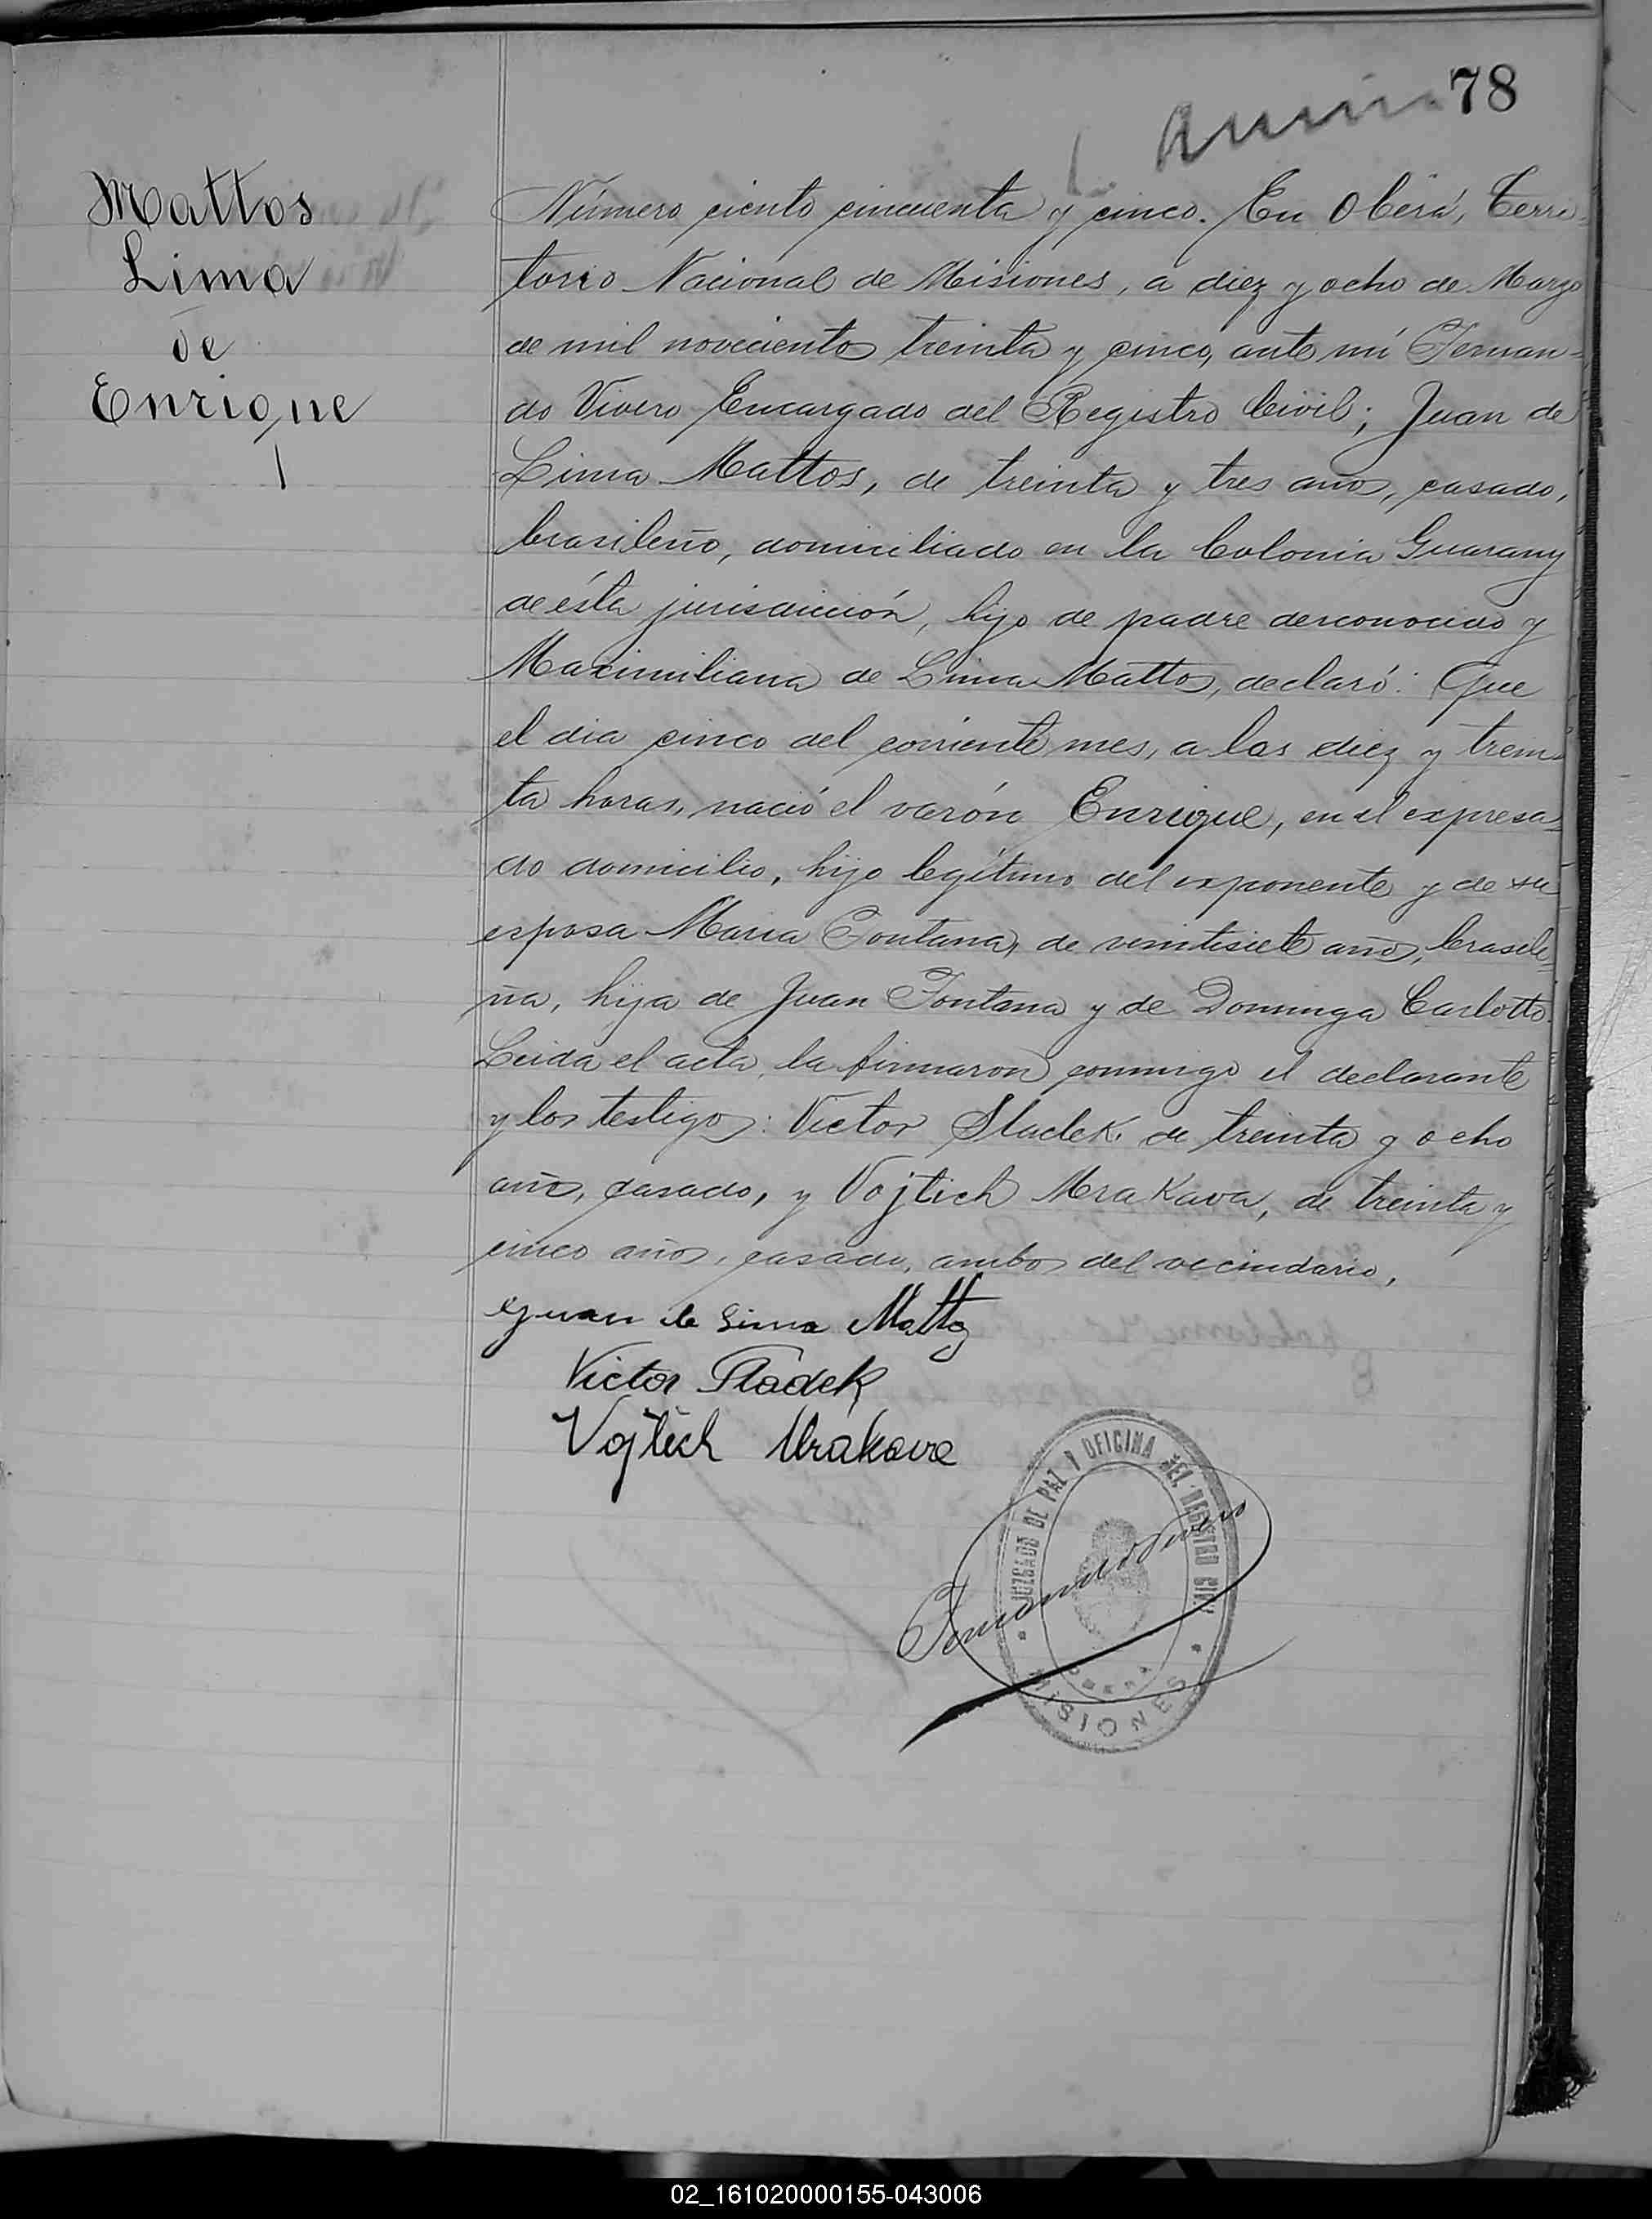 78
Mattos
Lima
de
Enrique
1
Número ciento cincuenta y cinco. En Oberá, Terri-
torio Nacional de Misiones, a diez y ocho de Marzo
de mil novecientos treinta y cinco, ante mi Fernan-
do Vivero Encargado del Registro Civil; Juan de
Lima Mattos, de treinta y tres años, casado,
brasileño, domiciliado en la Colonia Guarany
de ésta jurisdicción, hijo de padre desconocido y
Maximiliana de Lima Mattos, declaró: Que
el dia cinco del corriente mes, a las diez y trein-
ta horas, nació el varón Enrique, en el expresa-
do domicilio, hijo legítimo del exponente y de su
esposa Maria Fontana, de veintisiete años, brasile-
ña, hija de Juan Fontana y de Dominga Carlotto.
Leida el acta, la firmaron conmigo el declarante
y los testigos: Victor Sladek, de treinta y ocho
años, casado, y Vojtich Mrakava, de treinta y
cinco años, casado, ambos del vecindario,
Juan de Lima Mattos
Victor Sladek
Vojtěch Mrakava
Fernando Vivero
JUZGADO DE PAZ Y OFICINA DEL REGISTRO CIVIL
OBERA
MISIONES
02_161020000155-043006